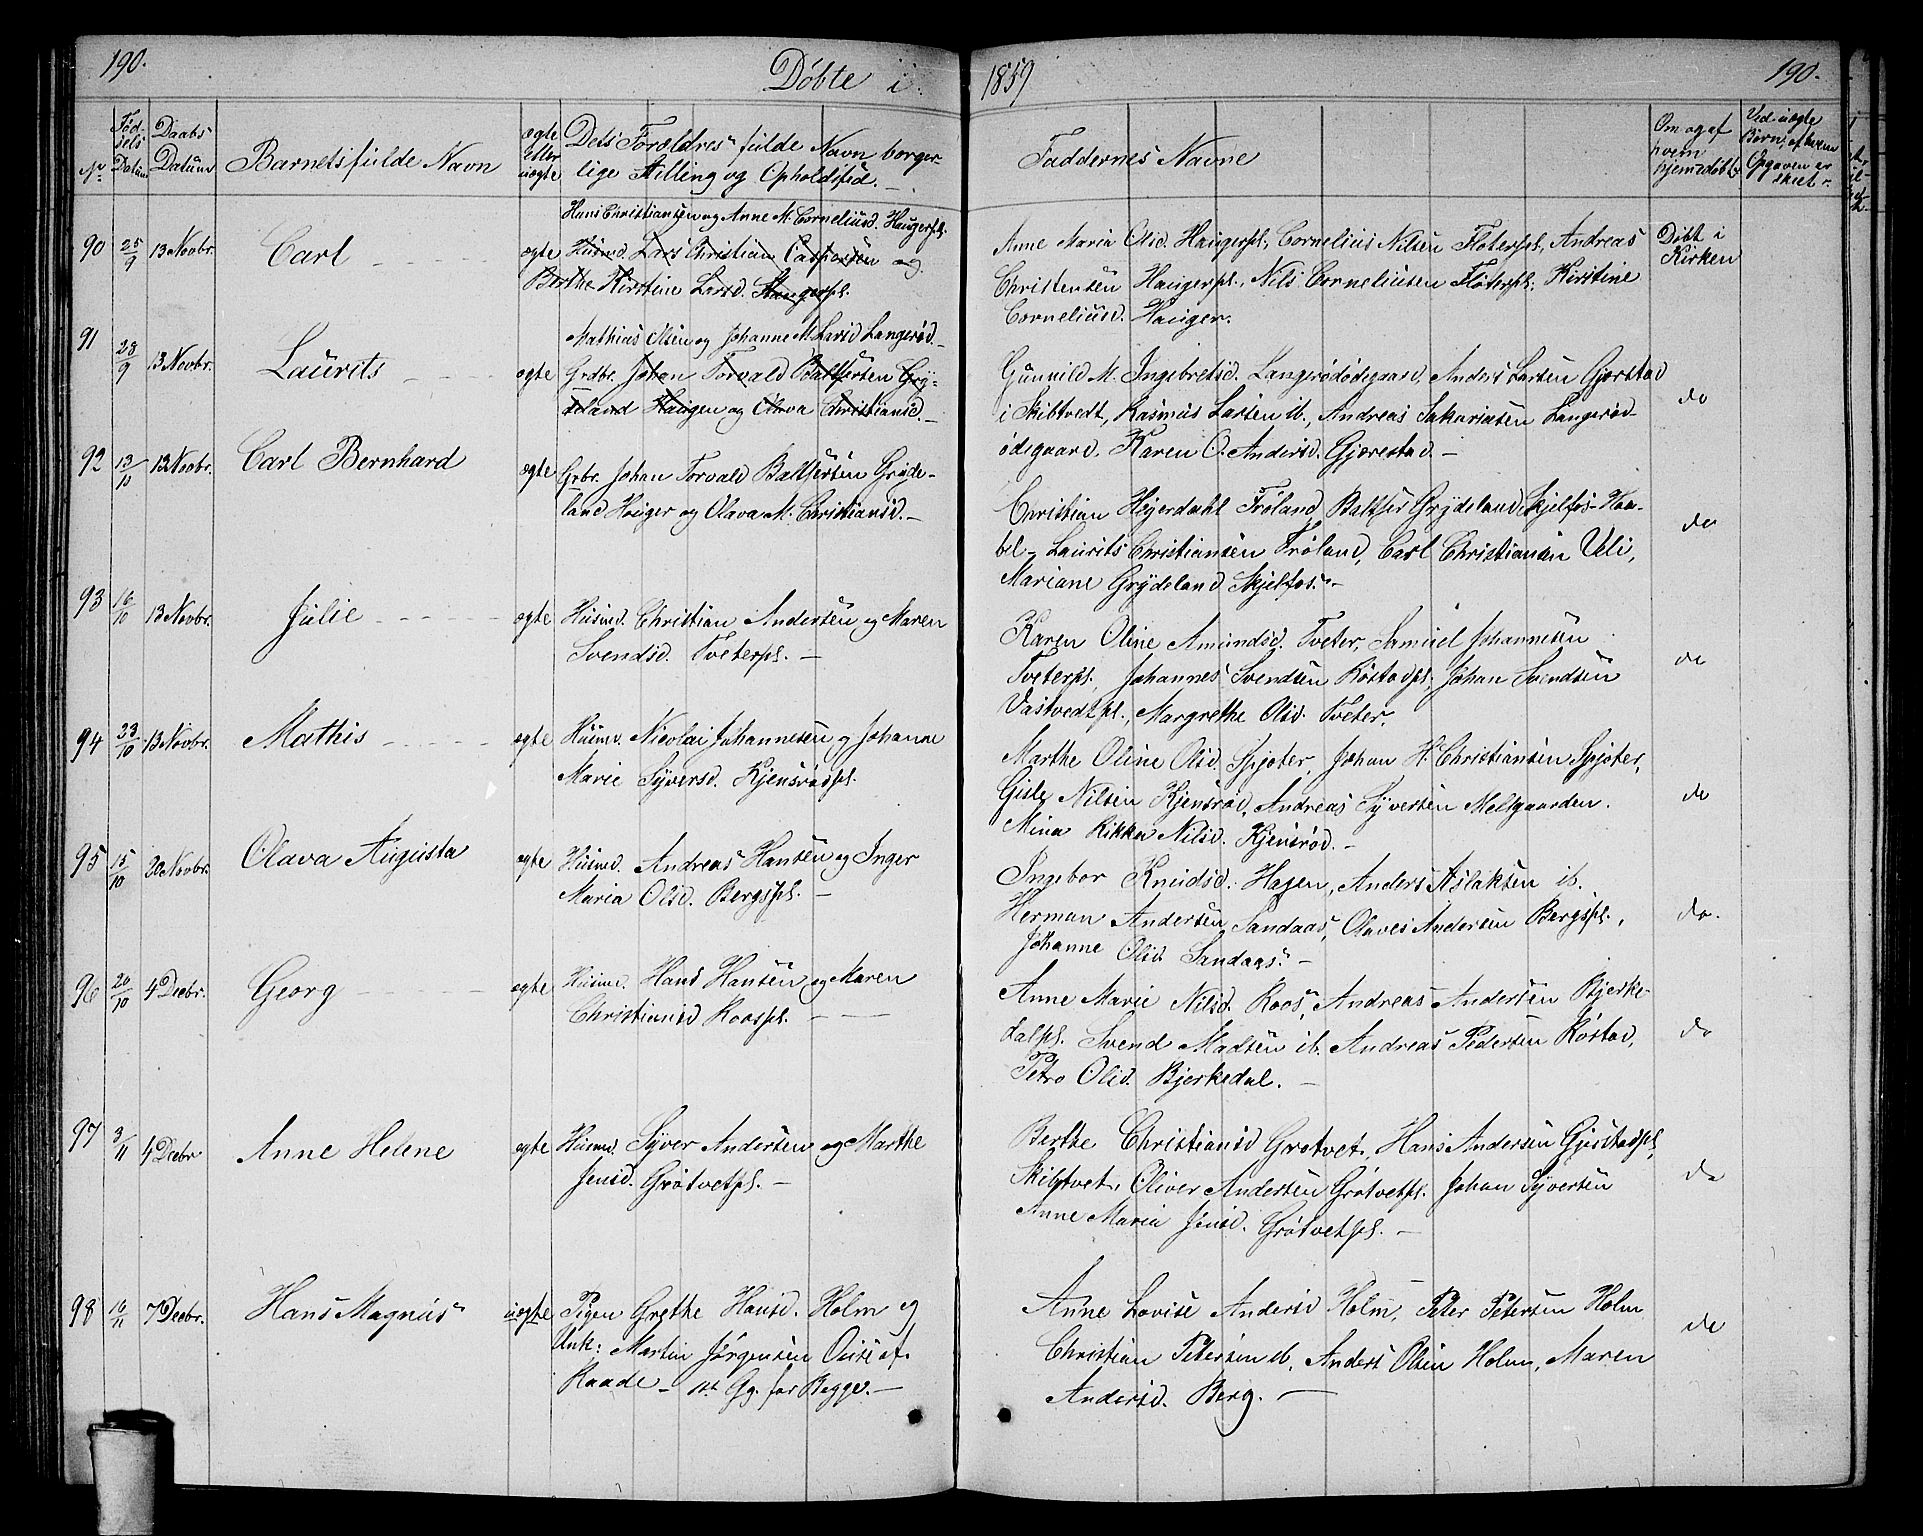 190.
Døbte i
1859
190.
No
Fød-
sels
Datum
Daabs
Datum
Barnets fulde Navn
ægte
eller
uægte
Dets Forældres fulde Navn borger-
lige Stilling og Opholdsted.
Faddernes Navne
Om og af
hvem
hjemmedøbt
Ved uægte
Børn, af hvem
Opgaven er
skeet.
90 25/9 13 Novbr. Carl
ægte
Hans Christiansen og Anne M. Corneliusd. Haugerpl.
Husmd. Lars Christian Caspersen og
Berthe Kirstine Larsd. Haugerpl.
Anne Maria Olsd. Haugerpl., Cornelius Nilsen Fløterpl., Andreas
Christensen Haugerpl., Nils Corneliusen Fløterpl. Kirstine
Corneliusd. Hauger.
Døbt i
Kirken
91 28/9 13 Novbr. Laurits
ægte
Mathias Olsen og Johanne M. Larsd Langerød
Grdbr. Johan Torvald Baltsersen Gry-
deland Haugen og Olava Christiansd.
Gunnild M. Ingebretsd. Langerødødegaard, Anders Larsen Gjørstad
i Skibtvedt, Rasmus Larsen ib., Andreas Sakariasen Langerød-
ødegaard, Karen O. Andersd. Gjørestad.
do
92 13/10 13 Novbr. Carl Bernhard
ægte
Grbr. Johan Torvald Baltsersen Gryde-
land Hauger og Olava M. Christiansd.
Christian Heyerdahl Frøland, Baltser Grydeland Skjelfos-Haa-
bel- Laurits Christiansen Frøland, Carl Christiansen Veli,
Mariane Grydeland Skjelfos.
do
93 16/10 13 Novbr. Julie
ægte
Husmd. Christian Andersen og Maren
Svendsd. Tveterpl.
Karen Oline Amundsd. Tveter, Samuel Johannesen
Tveterpl., Johannes Svendsen Rostadpl. Johan Svendsen
Vastvedtpl., Margrethe Olsd. Tveter.
do
94 23/10 13 Novbr. Mathis
ægte
Husmd. Nicolai Johannesen og Johanne
Marie Syversd. Kjensrødpl.
Marthe Oline Olsd. Spjøter, Johan H. Christiansen Spjøter,
Gisle Nilsen Kjensrød, Andreas Syversen Melgaarden.
Mina Rikka Nilsd. Kjensrød.
do
95 15/10 20 Novbr. Olava Augusta
ægte
Husmd. Andreas Hansen og Inger
Maria Olsd. Bergspl.
Ingebor Knudsd. Hagen, Anders Aslaksen ib.
Herman Andersen Sandaas, Olaves Andersen Bergspl.,
Johanne Olsd. Sandaas.
do.
96 20/10 4 Decbr. Georg
ægte
Husmd. Hans Hansen og Maren
Christiansd Roospl.
Anne Marie Nilsd. Roos, Andreas Andersen Bjerke-
dalpl. Svend Madsen ib. Andreas Pedersen Rostad,
Petra Olsd. Bjerkedal.
do
97 3/11 4 Decbr Anne Helene
ægte
Husmd. Syver Andersen og Marthe
Jensd. Grøtvetpl.
Berthe Christiansd Grøtvet, Hans Andersen Gjøstadpl,
Skibtvet, Oliver Andersen Grøtvetpl. Johan Syversen
Anne Maria Jensd. Grøtvetpl.
do
98 10/11 7 Decbr. Hans Magnus
uægte
Pigen Grethe Hansd. Holm og
Unk: Martin Jørgensen Ousi af
Raade - 1st Gg. for Begge.
Anne Lovise Andersd Holm, Peter Petersen Holm
Christian Petersen ib, Anders Olsen Holm, Maren
Andersd. Berg.
do